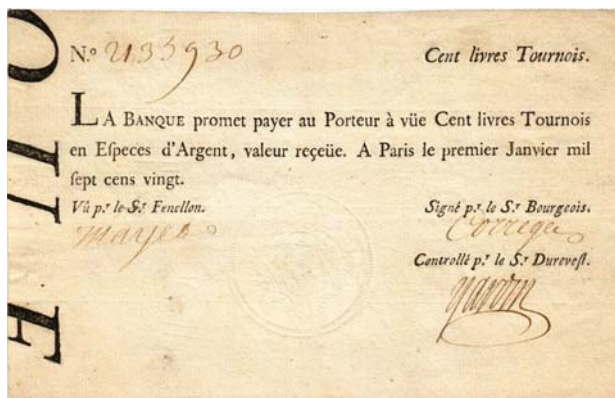 N.º 2135930 Cent livres Tournois.
LA BANQUE promet payer au Porteur à vüe Cent livres Tournois
en Eſpeces d'Argent, valeur reçeüe. A Paris le premier Janvier mil
ſept cens vingt.
Vû p.r le S.r Fenellon. Signé p.r le S.r Bourgeois.
Controllé p.r le S.r Durevest.